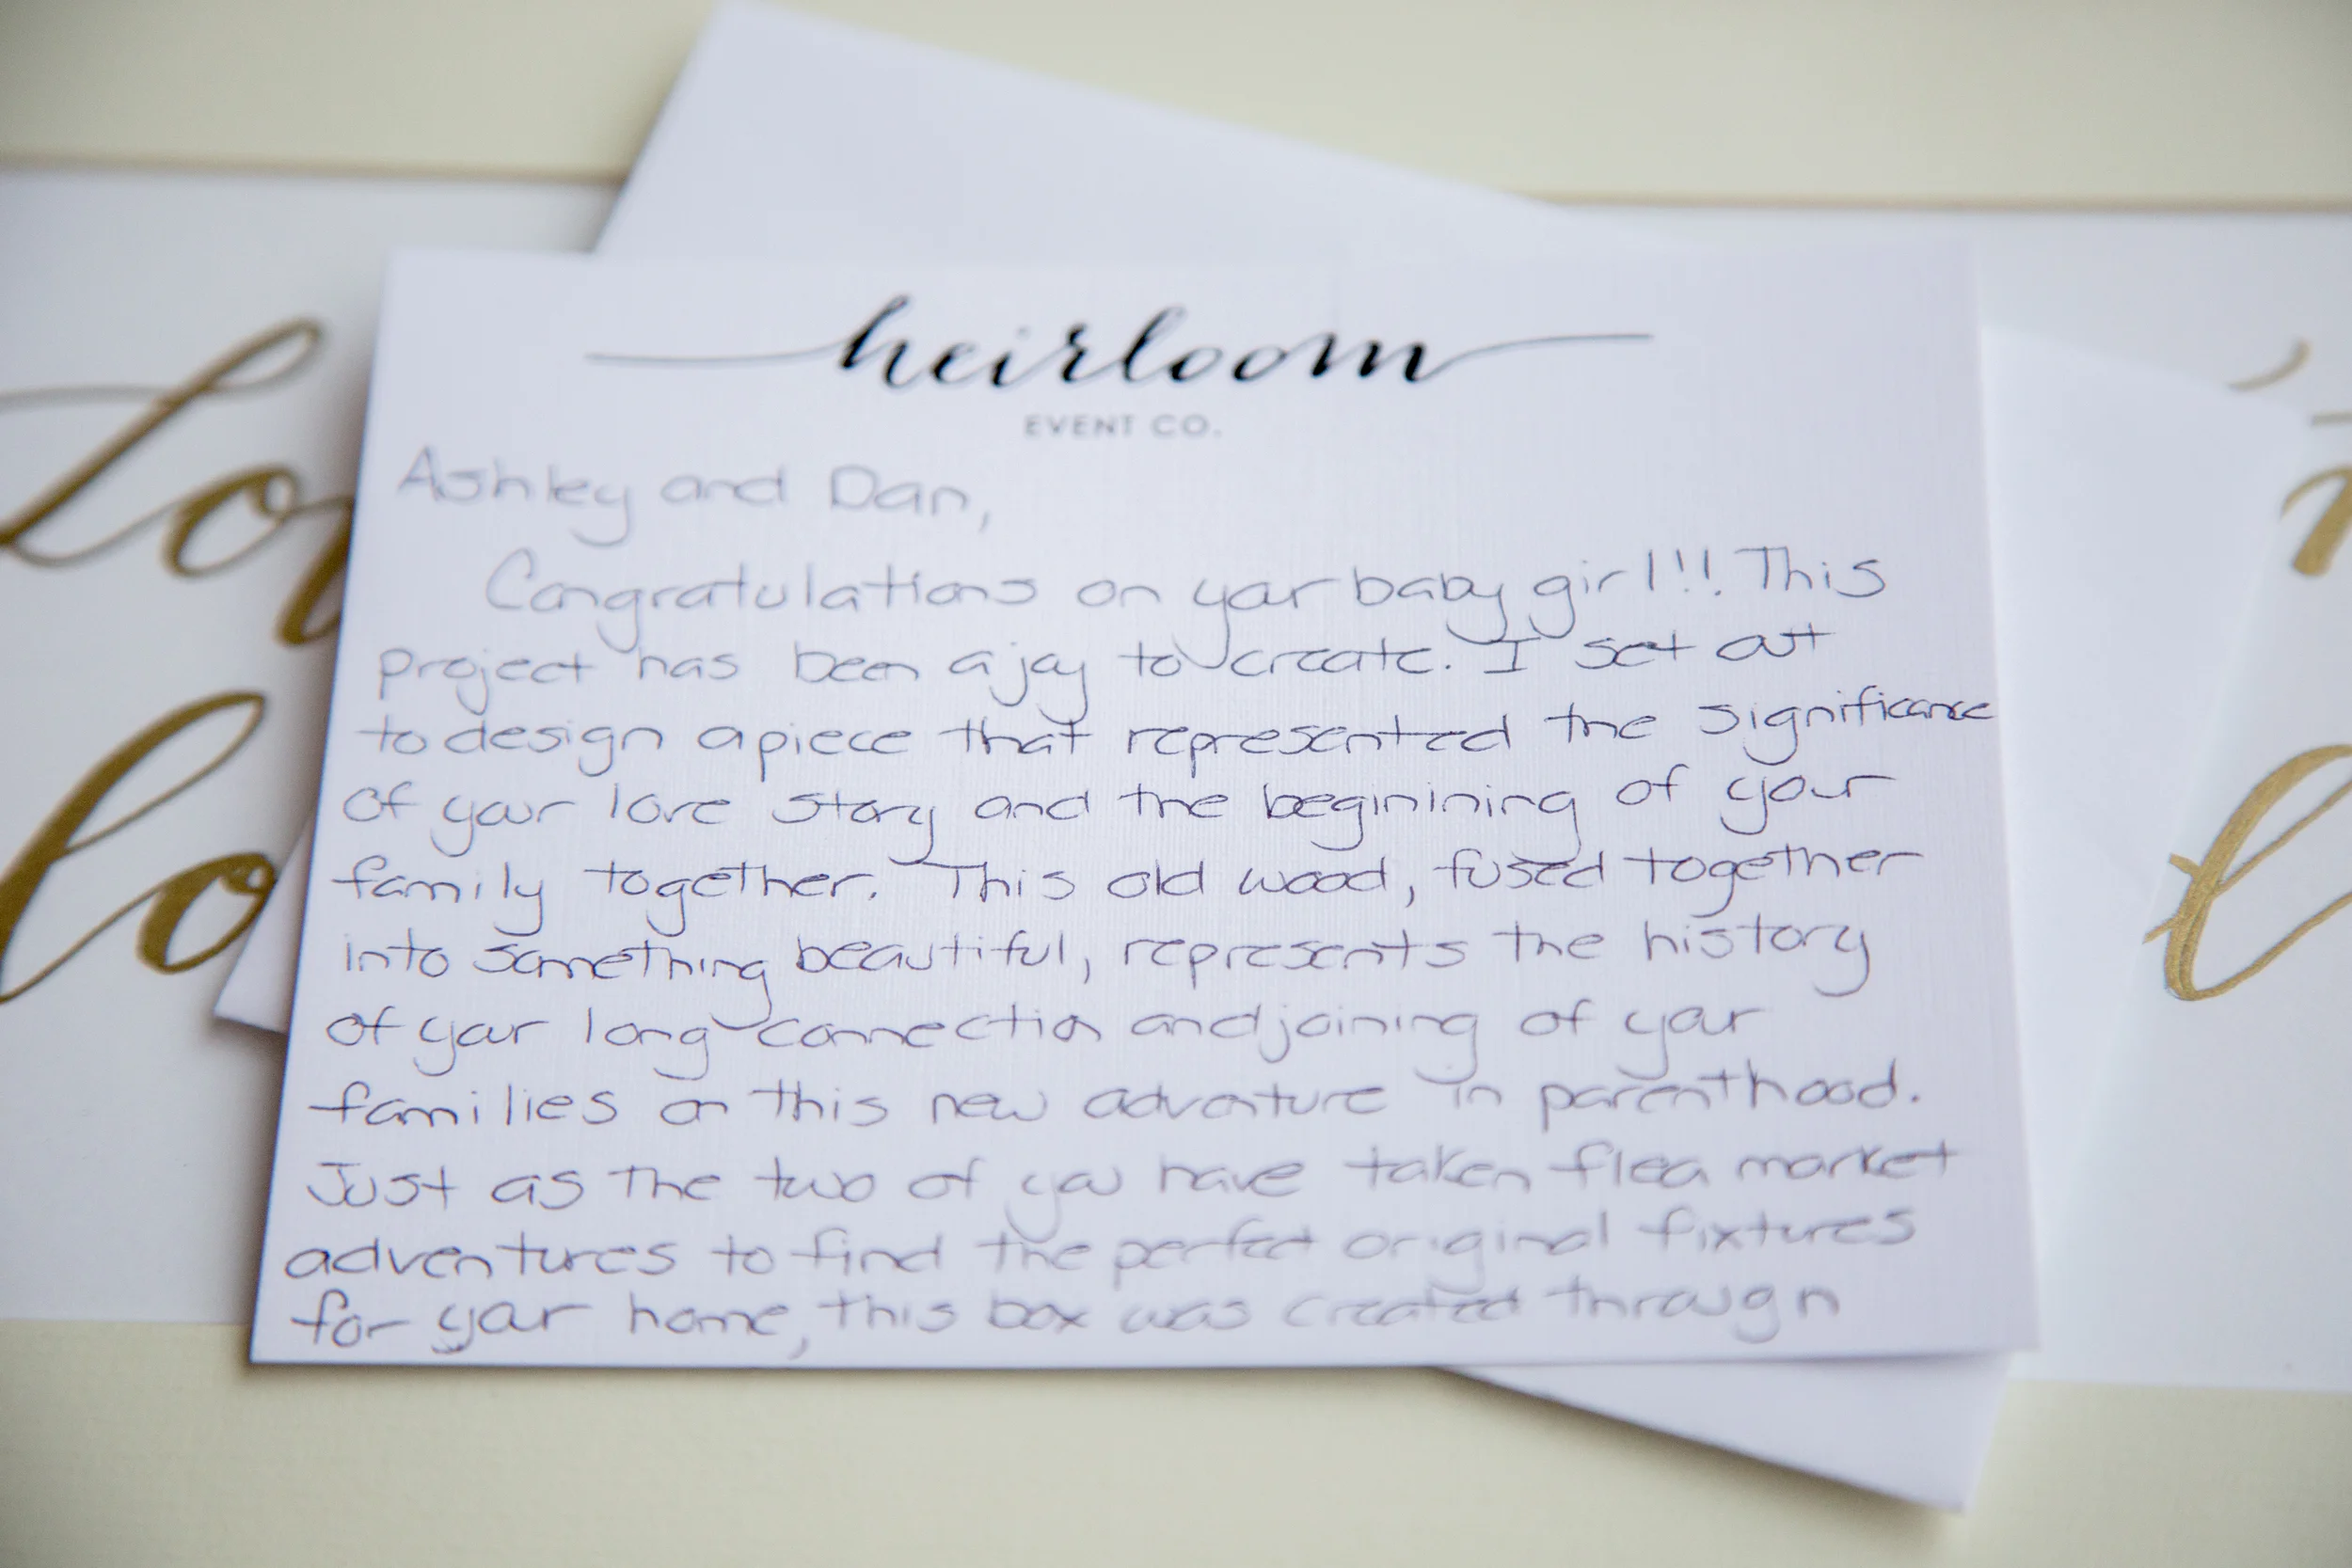 heirloom
EVENT CO.
Ashley and Dan,
Congratulations on your baby girl!!! This
project has been a joy to create. I set out
to design a piece that represented the significance
of your love story and the beginining of your
family together. This old wood, fused together
into something beautiful, represents the history
of your long connection and joining of your
families on this new adventure in parenthood.
Just as the two of you have taken flea market
adventures to find the perfect original fixtures
for your home, this box was created through